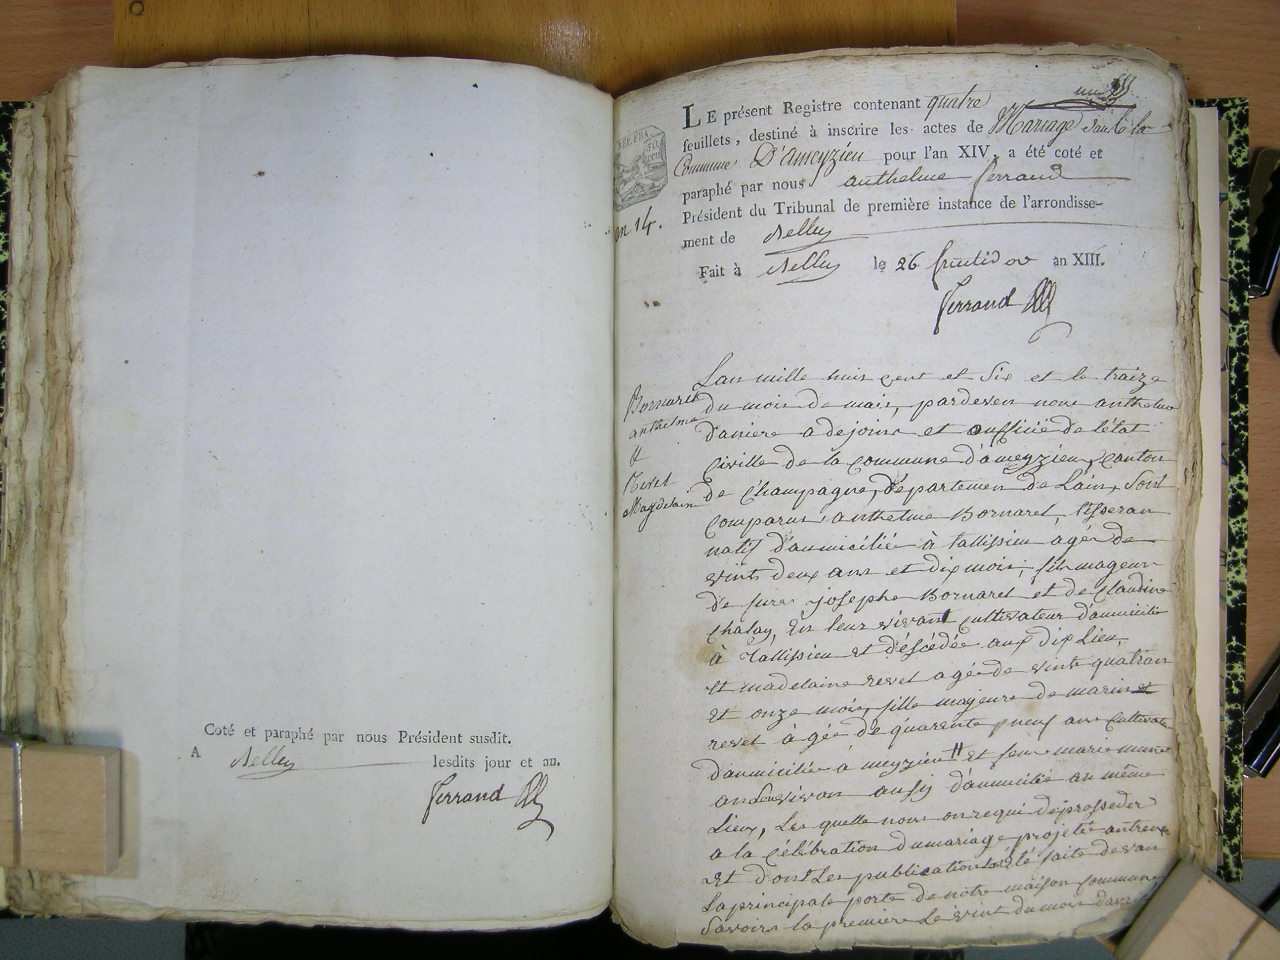 Coté et paraphé par nous Président susdit.
A Belley lesdits jour et an.
Ferrand
un
LE présent Registre contenant quatre
feuillets, destiné à inscrire les actes de Mariage dans la
Commune D'ameyzieu pour l'an XIV, a été coté et
paraphé par nous anthelme ferrand
Président du Tribunal de première instance de l'arrondisse-
ment de Belley
Fait à Belley le 26 fructidor an XIII.
Ferrand
an 14.
Bornaret
anthelme
et
Revet
Magdelaine
Lan mille huis cent et Six et le traize
du mois de mais, pardeven nous anthelme
daniere adejoins et aufficié de l'état
Civille de la commune d'ameyzieu, Canton
de Champagne, département de Lain, Sont
comparus anthelme Bornaret, tisseran
natif d'aumicilié à tallissieu agé de
vints deux ans et dix mois, fils mageur
de furs josephe Bornaret et de Claudine
Chalay, En leur vivant Cultivateur d'aumicilié
à Tallissieu et décédée aux dix Lieu,
et madelaine revet agée de vints quatrans
et onze mois, fille majeure de marin
revet agée de quarente neuf ans Cultivate
d'aumicilié a meyzieu et feue marie
an Son vivan ausi d'aumicilié au même
Lieux, Les quelle nous on requi de prosseder
a la Célébration du mariage projeté antreux
et dont Les publications été faite devan
La principale porte de notre maison commune
Savoirs la premiere Le vint du mois